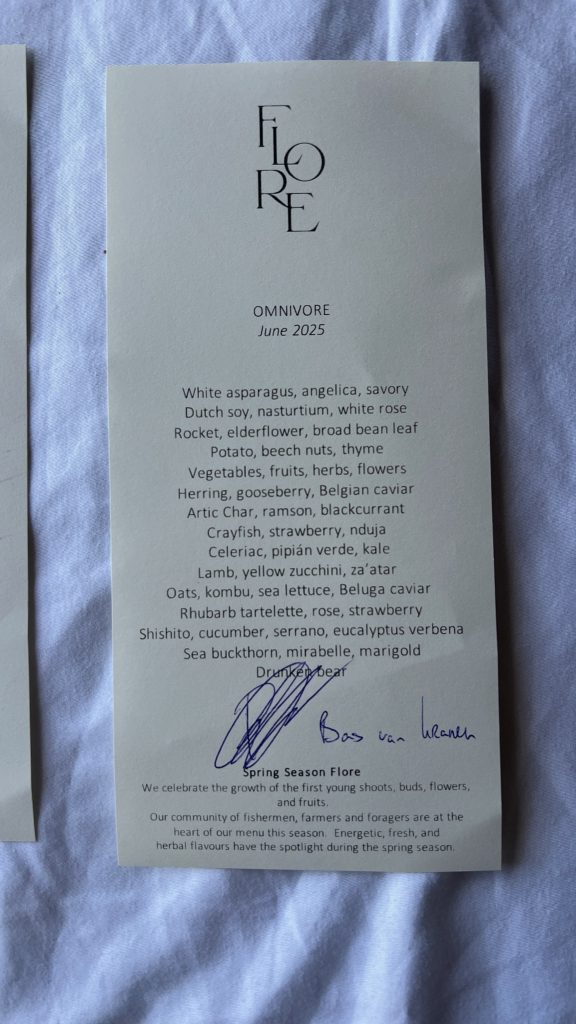 FLORE
OMNIVORE
June 2025
White asparagus, angelica, savory
Dutch soy, nasturtium, white rose
Rocket, elderflower, broad bean leaf
Potato, beech nuts, thyme
Vegetables, fruits, herbs, flowers
Herring, gooseberry, Belgian caviar
Artic Char, ramson, blackcurrant
Crayfish, strawberry, nduja
Celeriac, pipián verde, kale
Lamb, yellow zucchini, za’atar
Oats, kombu, sea lettuce, Beluga caviar
Rhubarb tartelette, rose, strawberry
Shishito, cucumber, serrano, eucalyptus verbena
Sea buckthorn, mirabelle, marigold
Drunken bear
Bas van Kranen
Spring Season Flore
We celebrate the growth of the first young shoots, buds, flowers,
and fruits.
Our community of fishermen, farmers and foragers are at the
heart of our menu this season. Energetic, fresh, and
herbal flavours have the spotlight during the spring season.